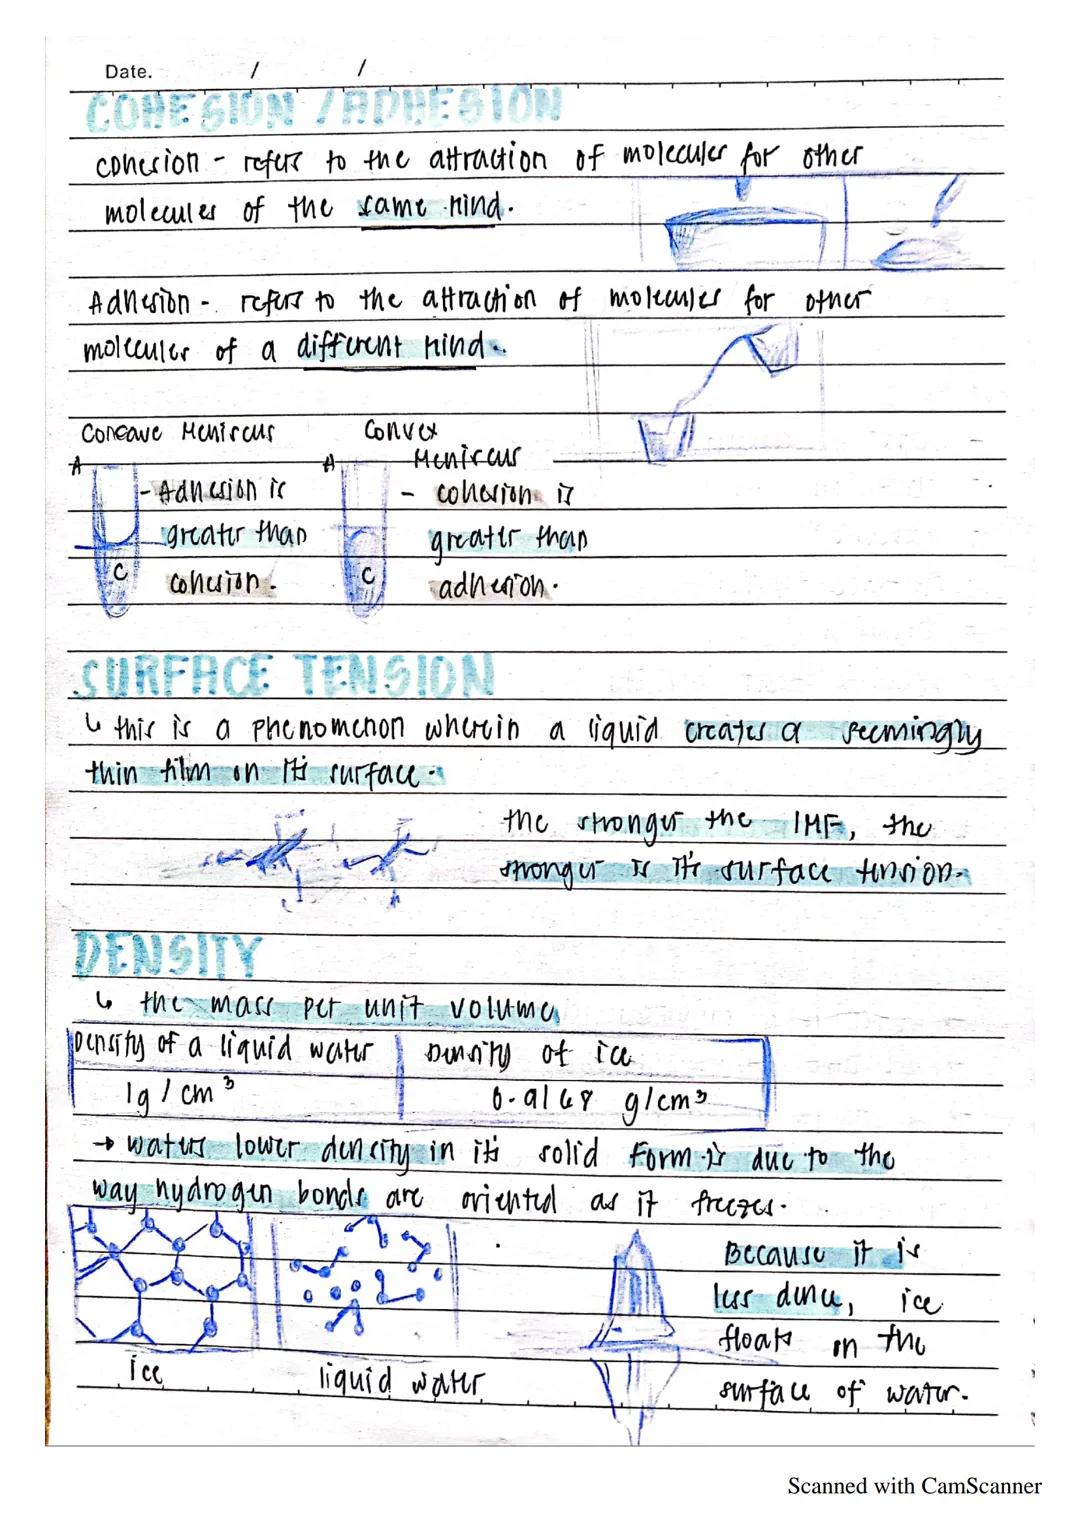 Date. / /
COHESION / ADHESION
cohesion - refers to the attraction of molecules for other
molecules of the same kind.
Adhesion - refers to the attraction of molecules for other
molecules of a different kind.
Concave Meniscus
Convex
Meniscus
A
A
- Adhesion is
greater than
cohesion.
- cohesion is
greater than
adhesion.
C
C
SURFACE TENSION
↳ this is a phenomenon wherein a liquid creates a seemingly
thin film on its surface.
the stronger the IMF, the
stronger is its surface tension.
DENSITY
↳ the mass per unit volume
Density of a liquid water
Density of ice
1g / cm³
0.9168 g/cm³
→ waters lower density in its solid form is due to the
way hydrogen bonds are oriented as it freezes.
Because it is
less dense, ice
floats on the
surface of water.
ice
liquid water
Scanned with CamScanner